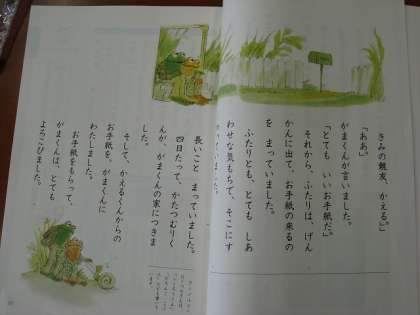 きみの親友、かえる。」
「ああ。」
がまくんが言いました。
「とても いいお手紙だ。」
それから、ふたりは、げん
かんに出て、お手紙の来るの
を まっていました。
ふたりとも、とても しあ
わせな気もちで、そこにす
長いこと まっていました。
四日たって、かたつむりく
んが、がまくんの家につきま
した。
そして、かえるくんからの
お手紙を、がまくんに
わたしました。
お手紙をもらって、
がまくんは、とても
よろこびました。